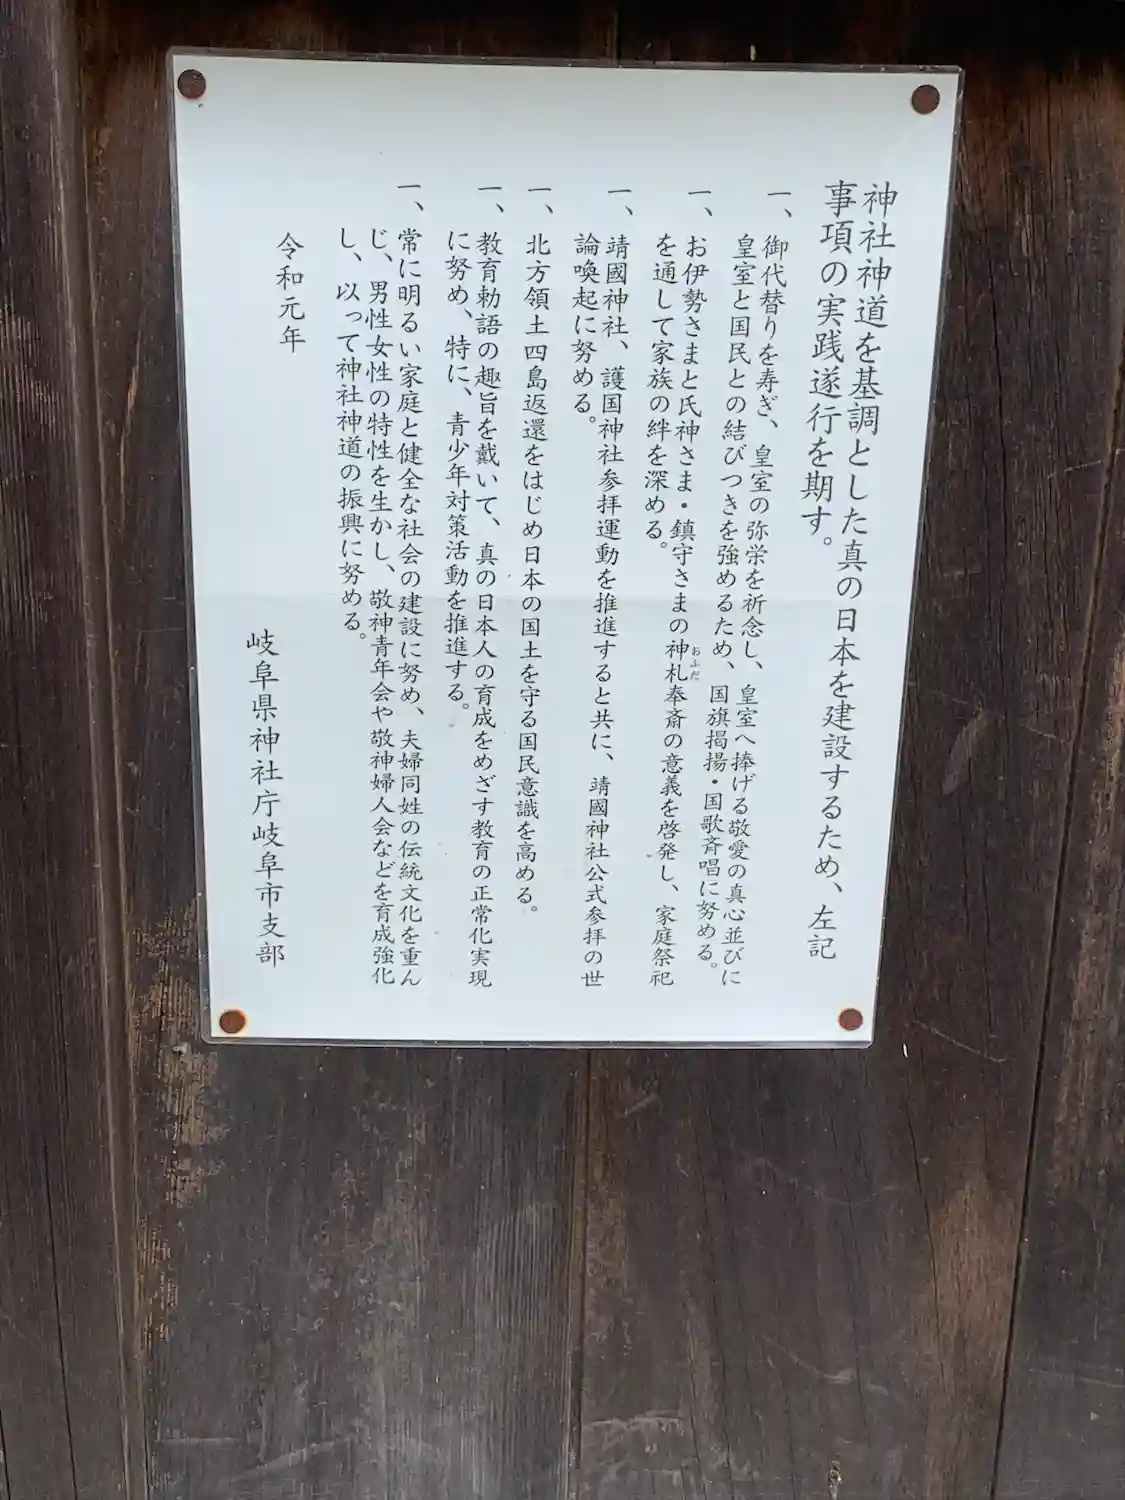 神社神道を基調とした真の日本を建設するため、左記
事項の実践遂行を期す。
一、御代替りを寿ぎ、皇室の弥栄を祈念し、皇室へ捧げる敬愛の真心並びに
皇室と国民との結びつきを強めるため、国旗掲揚・国歌斉唱に努める。
一、お伊勢さまと氏神さま・鎮守さまの神札奉斎の意義を啓発し、家庭祭祀
おふだ
を通して家族の絆を深める。
一、靖國神社、護国神社参拝運動を推進すると共に、靖國神社公式参拝の世
論喚起に努める。
一、北方領土四島返還をはじめ日本の国土を守る国民意識を高める。
一、教育勅語の趣旨を戴いて、真の日本人の育成をめざす教育の正常化実現
に努め、特に、青少年対策活動を推進する。
一、常に明るい家庭と健全な社会の建設に努め、夫婦同姓の伝統文化を重ん
じ、男性女性の特性を生かし、敬神青年会や敬神婦人会などを育成強化
し、以って神社神道の振興に努める。
令和元年
岐阜県神社庁岐阜市支部